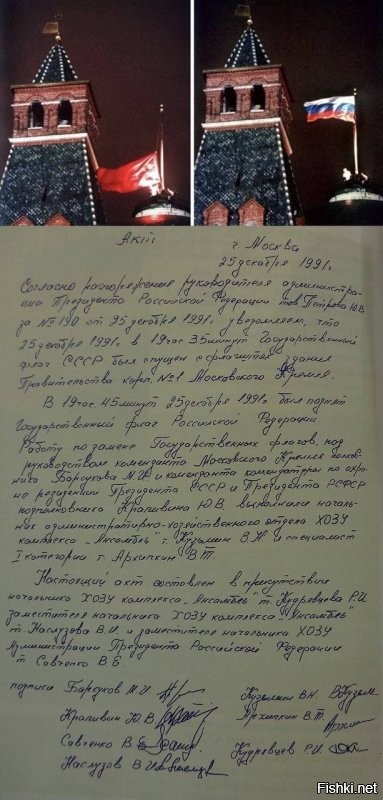 Акт
г Москва
25 декабря 1991г.
Согласно распоряжения руководителя администра-
ции Президента Российской Федерации тов. Петрова Ю.В.
за № 190 от 25 декабря 1991г. уведомляем, что
25 декабря 1991г. в 19 час 35 минут Государственный
флаг СССР был спущен с флагштока здания
Правительства корп. №1 Московского Кремля.
В 19 час. 45 минут 25 декабря 1991г. был поднят
Государственный флаг Российской Федерации
Работу по замене Государственных флагов, под
руководством коменданта Московского Кремля полков-
ника Барсукова М.И. и коменданта комендатуры по охра-
не резиденции Президента СССР и Президента РСФСР
подполковника Крапивина Ю.В. выполнили началь-
ник административно-хозяйственного отдела ХОЗУ
комплекса „Ансамбль" т. Кузьмин В.Н. и специалист
I категории т. Архипкин В.Т.
Настоящий акт составлен в присутствие
начальника ХОЗУ комплекса „Ансамбль" т. Кудрявцева Р.И.
заместителя начальника ХОЗУ комплекса „Ансамбль"
т. Насузова В.И. и заместителя начальника ХОЗУ
Администрации Президента Российской Федерации
т. Савченко В.Б
подписи Барсуков М.И.
Кузьмин В.Н.
Крапивин Ю.В.
Архипкин В.Т.
Савченко В.Б
Кудрявцев Р.И
Насузов В.И.
Fishki.net